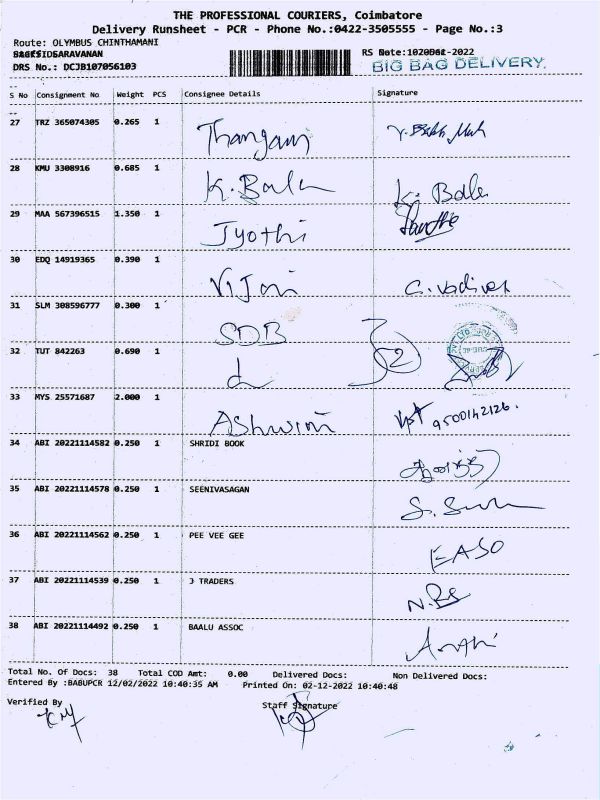 THE PROFESSIONAL COURIERS, Coimbatore
Delivery Runsheet - PCR - Phone No.:0422-3505555 - Page No.:3
Route: OLYMBUS CHINTHAMANI
DRS No.: DCJB107056103
BIG BAG DELIVERY
S No Consignment No Weight PCS Consignee Details Signature
27 TRZ 365074305 0.265 1 Thangam
28 KMU 3308916 0.685 1 K. Bala K. Bala
29 MAA 567396515 1.350 1 Jyothi
30 EDQ 14919365 0.390 1
31 SLM 308596777 0.300 1 SDB
32 TUT 842263 0.690 1
33 MYS 25571687 2.000 1 Ashwini 9500142126.
34 ABI 20221114582 0.250 1 SHRIDI BOOK
35 ABI 20221114578 0.250 1 SEENIVASAGAN
36 ABI 20221114562 0.250 1 PEE VEE GEE EASO
37 ABI 20221114539 0.250 1 J TRADERS
38 ABI 20221114492 0.250 1 BAALU ASSOC
Total No. Of Docs: 38 Total COD Amt: 0.00 Delivered Docs: Non Delivered Docs:
Entered By :BABUPCR 12/02/2022 10:40:35 AM Printed On: 02-12-2022 10:40:48
Verified By Staff Signature